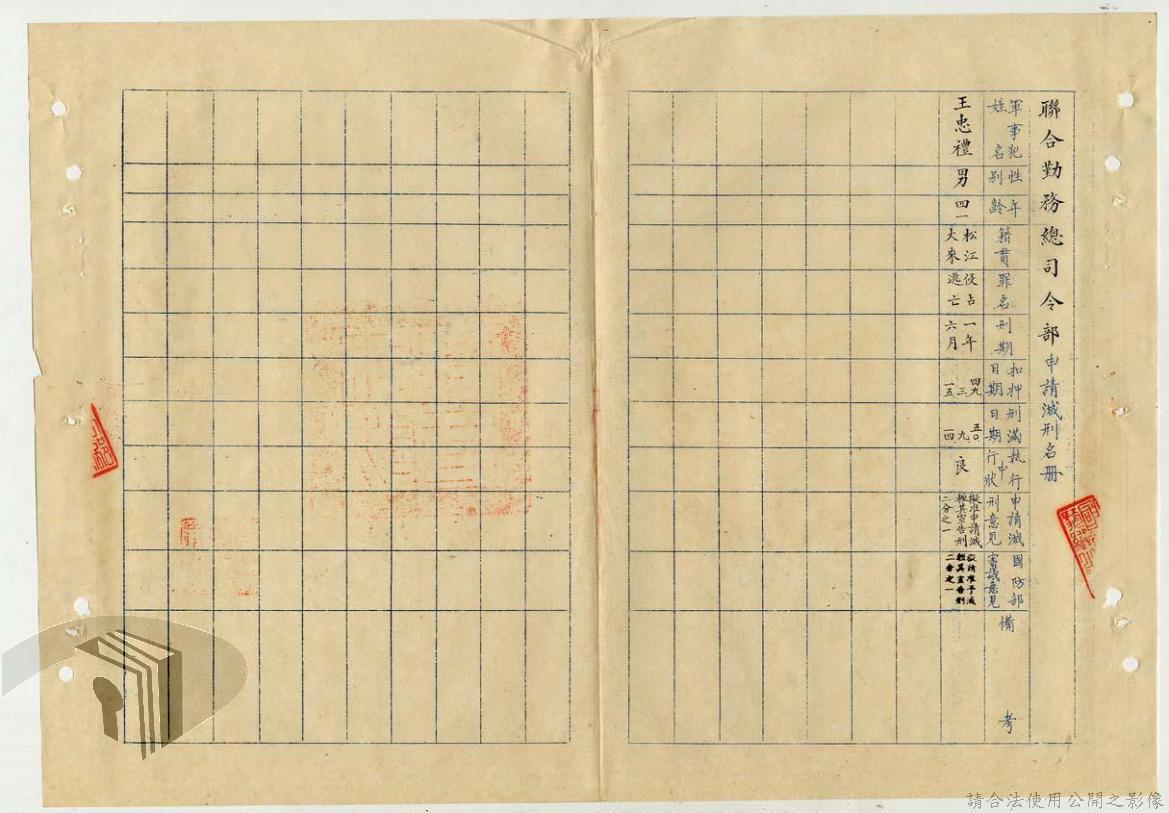 聯合勤務總司令部申請減刑名册
軍事犯
姓名
性別
年齡
籍貫
罪名
刑期
扣押
日期
刑滿
日期
執行中
行狀
申請減
刑意見
國防部
審議意見
備考
王忠禮
男
四一
松江
大來
侵占
逃亡
一年
六月
四九
三
一五
五〇
九
一四
良
擬准申請減
輕其宣告刑
二分之一
擬請准予減
輕其宣告刑
二分之一
請合法使用公開之影像